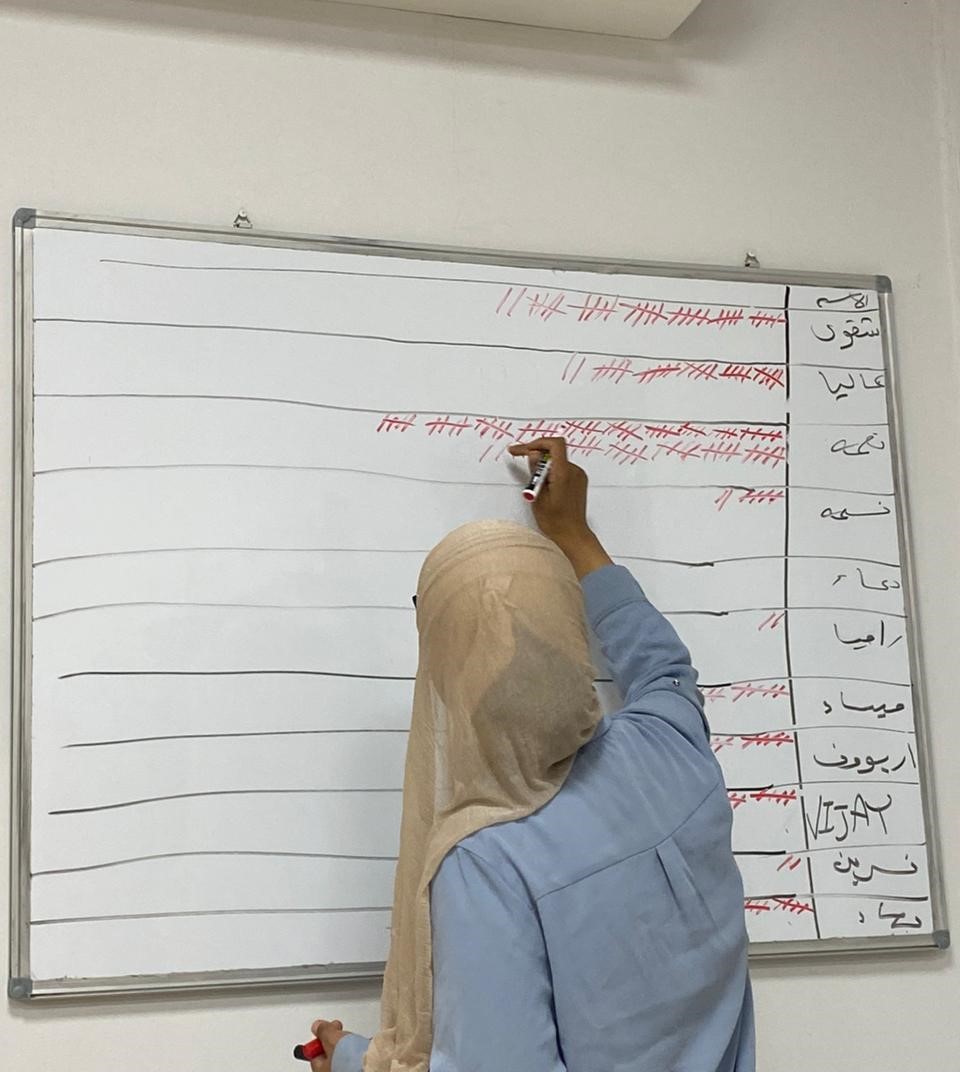 الاسم
شقوى
عاليا
نجمه
نسمه
دعاء
راميا
ميساء
اريوودف
VIJAY
نسرين
نهاد